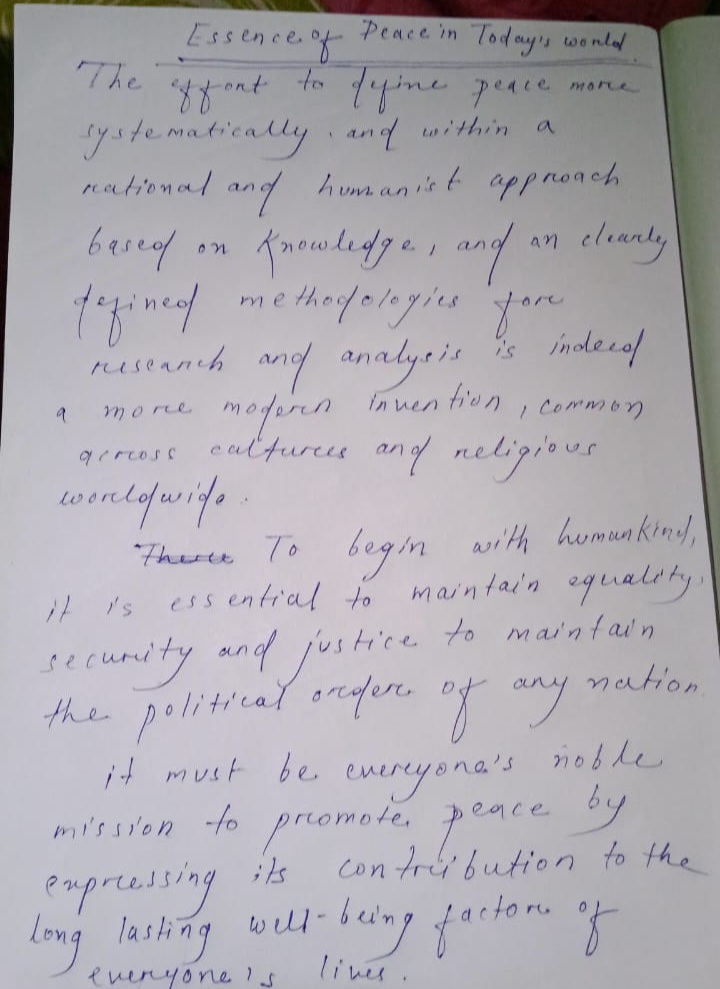 Essence of Peace in Today's world
The effort to define peace more
systematically. and within a
rational and humanist approach
based on Knowledge, and an clearly
defined methodologies for
research and analysis is indeed
a more modern invention, common
across cultures and religious
worldwide.
There To begin with humankind,
it is essential to maintain equality,
security and justice to maintain
the political order of any nation.
it must be everyone's noble
mission to promote peace by
expressing its contribution to the
long lasting well-being factor of
everyone's lives.